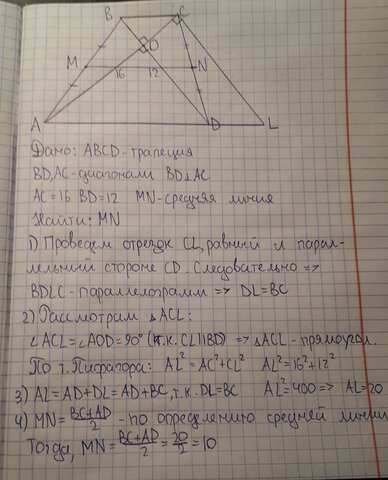 B C
O
M 16 12 N
A D L
Дано: ABCD - трапеция
BD, AC - диагонали BD⊥AC
AC=16 BD=12 MN - средняя линия
Найти: MN
1) Проведем отрезок CL, равный и парал-
лельный стороне CD. Следовательно =>
BDLC - параллелограмм => DL=BC
2) Рассмотрим △ACL:
∠ACL=∠AOD=90° (т.к. CL||BD) => △ACL - прямоугол.
По т. Пифагора: AL²=AC²+CL² AL²=16²+12²
3) AL=AD+DL=AD+BC, т.к. DL=BC AL²=400 => AL=20
4) MN=(BC+AD)/2 - по определению средней линии
Тогда, MN=(BC+AD)/2=20/2=10